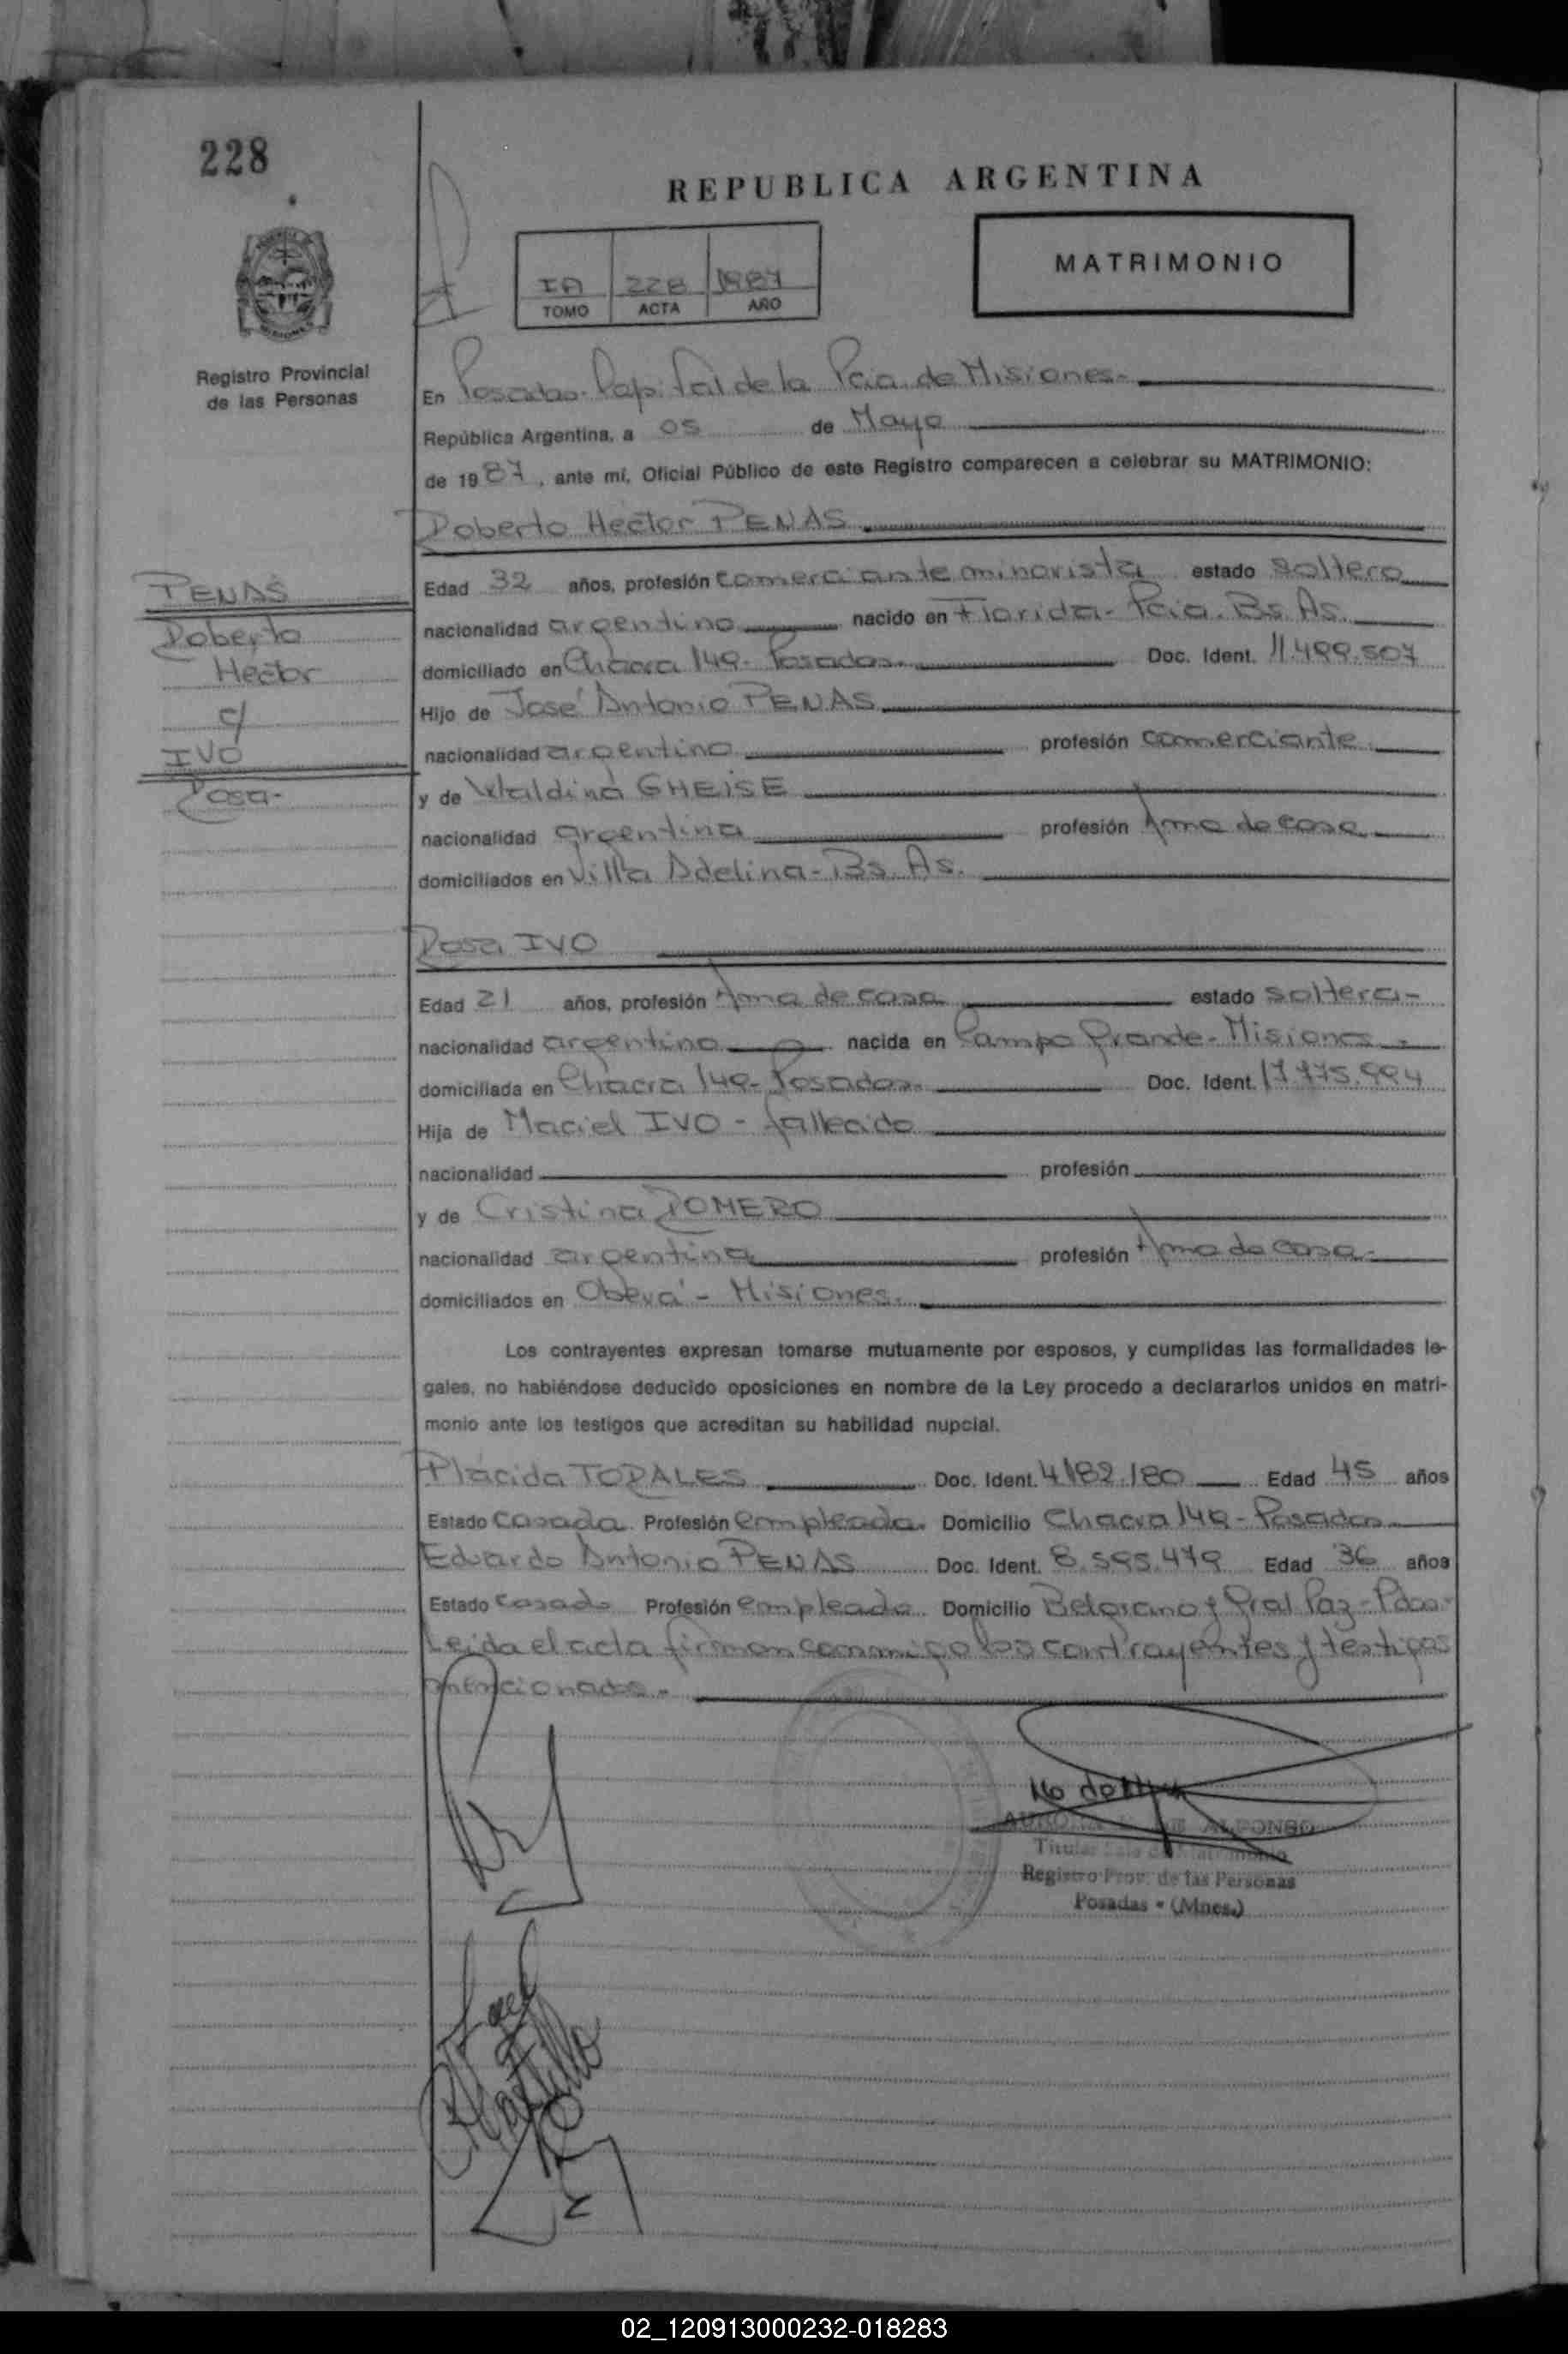 228
REPUBLICA ARGENTINA
MATRIMONIO
IA 228 1987
TOMO ACTA AÑO
Registro Provincial
de las Personas
En Posadas. Capital de la Pcia. de Misiones.-
República Argentina, a 05 de Mayo
de 1987, ante mí, Oficial Público de este Registro comparecen a celebrar su MATRIMONIO:
Roberto Hector PENAS
PENAS
Roberto
Hector
c/
IVO
Rosa-
Edad 32 años, profesión comerciante minorista estado soltero
nacionalidad argentino nacido en Florida- Pcia. Bs. As.
domiciliado en Chacra 149- Posadas. Doc. Ident. 11.499.507
Hijo de José Antonio PENAS
nacionalidad argentino profesión comerciante
y de Waldina GHEISE
nacionalidad argentina profesión Ama de casa
domiciliados en Villa Adelina- Bs. As.
Rosa IVO
Edad 21 años, profesión Ama de casa estado soltera-
nacionalidad argentina nacida en Campo Grande- Misiones-
domiciliada en Chacra 149- Posadas. Doc. Ident. 17.775.994
Hija de Maciel IVO - fallecido
nacionalidad profesión
y de Cristina ROMERO
nacionalidad argentina profesión Ama de casa-
domiciliados en Oberá - Misiones.
Los contrayentes expresan tomarse mutuamente por esposos, y cumplidas las formalidades le-
gales, no habiéndose deducido oposiciones en nombre de la Ley procedo a declararlos unidos en matri-
monio ante los testigos que acreditan su habilidad nupcial.
Plácida TORALES Doc. Ident. 4.182.180 Edad 45 años
Estado casada Profesión empleada. Domicilio Chacra 149- Posadas
Eduardo Antonio PENAS Doc. Ident. 8.595.479 Edad 36 años
Estado casado Profesión empleado Domicilio Belgrano y Gral Paz- Pdas.-
Leida el acta firman conmigo los contrayentes y testigos
mencionados.-
AURORA DE ALFONSO
Titular Sala de Matrimonio
Registro Prov. de las Personas
Posadas - (Mnes.)
02_120913000232-018283